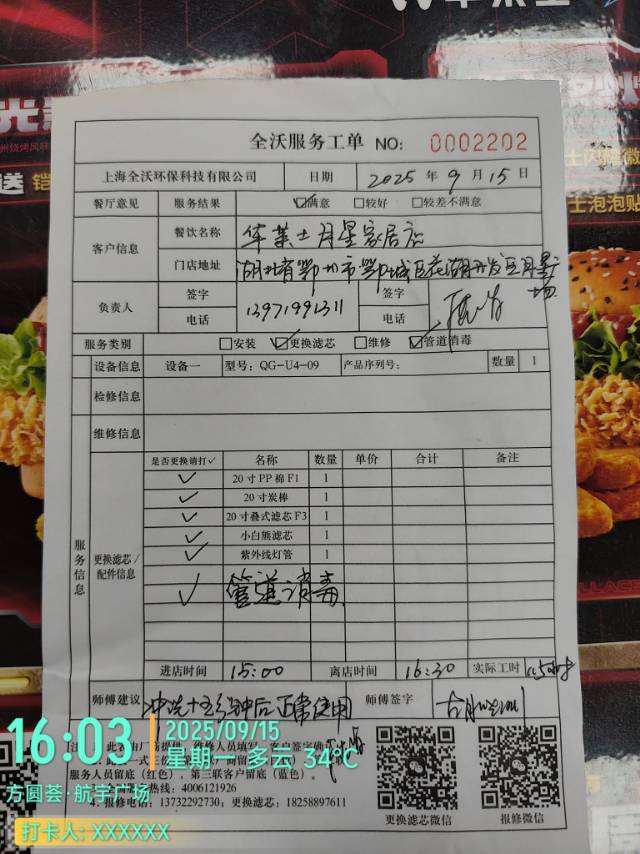 全沃服务工单 NO: 0002202
上海全沃环保科技有限公司 日期 2025 年 9 月 15 日
餐厅意见 服务结果 ☑满意 □较好 □较差不满意
客户信息 餐饮名称 华莱士月星家居店
门店地址 湖北省鄂州市鄂城区花湖开发区月星广场
负责人 签字 签字
电话 13971991311 电话
服务类别 □安装 ☑更换滤芯 □维修 ☑管道消毒
设备信息 设备一 型号: QG-U4-09 产品序列号: 数量 1
检修信息
维修信息
服务信息 更换滤芯/配件信息
是否更换请打✓ 名称 数量 单价 合计 备注
✓ 20寸PP棉F1 1
✓ 20寸炭棒 1
✓ 20寸叠式滤芯F3 1
✓ 小白熊滤芯 1
✓ 紫外线灯管 1
✓ 管道消毒
进店时间 15:00 离店时间 16:30 实际工时
师傅建议 冲洗十五分钟后正常使用 师傅签字
服务人员留底（红色），第三联客户留底（蓝色）。
热线: 4006121926
4、报修电话: 13732292730; 更换滤芯: 18258897611
更换滤芯微信 报修微信
16:03 2025/09/15
星期一 多云 34℃
方圆荟·航宇广场
打卡人: XXXXXX